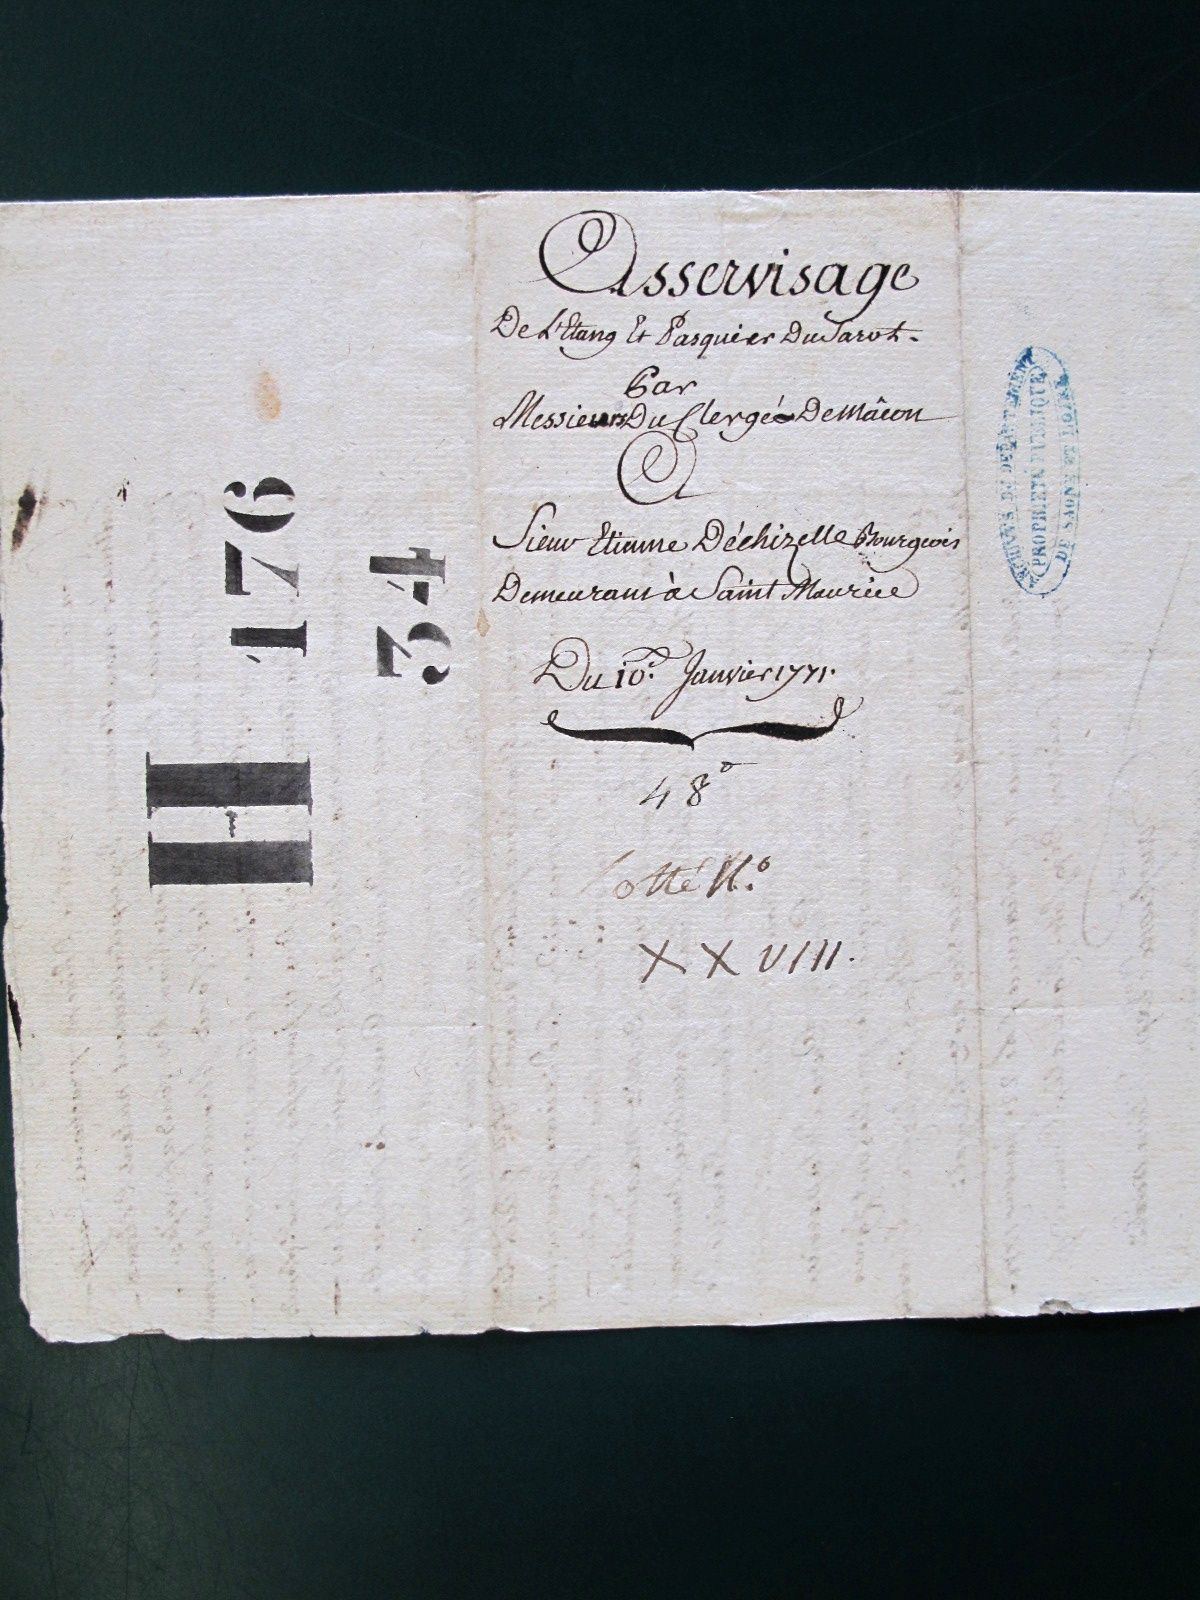 Asservisage
De L'Etang Et Pasquier Du Sarot.
Par
Messieurs Du Clergé De Mâcon
A
Sieur Etienne Déchizelle Bourgeois
Demeurant à Saint Maurice
Du 10e. Janvier 1771.
48e
Cotté N.o
XXVIII.
H 176
34
ARCHIVES DU DEPARTEMENT
PROPRIETE PUBLIQUE
DE SAONE ET LOIRE